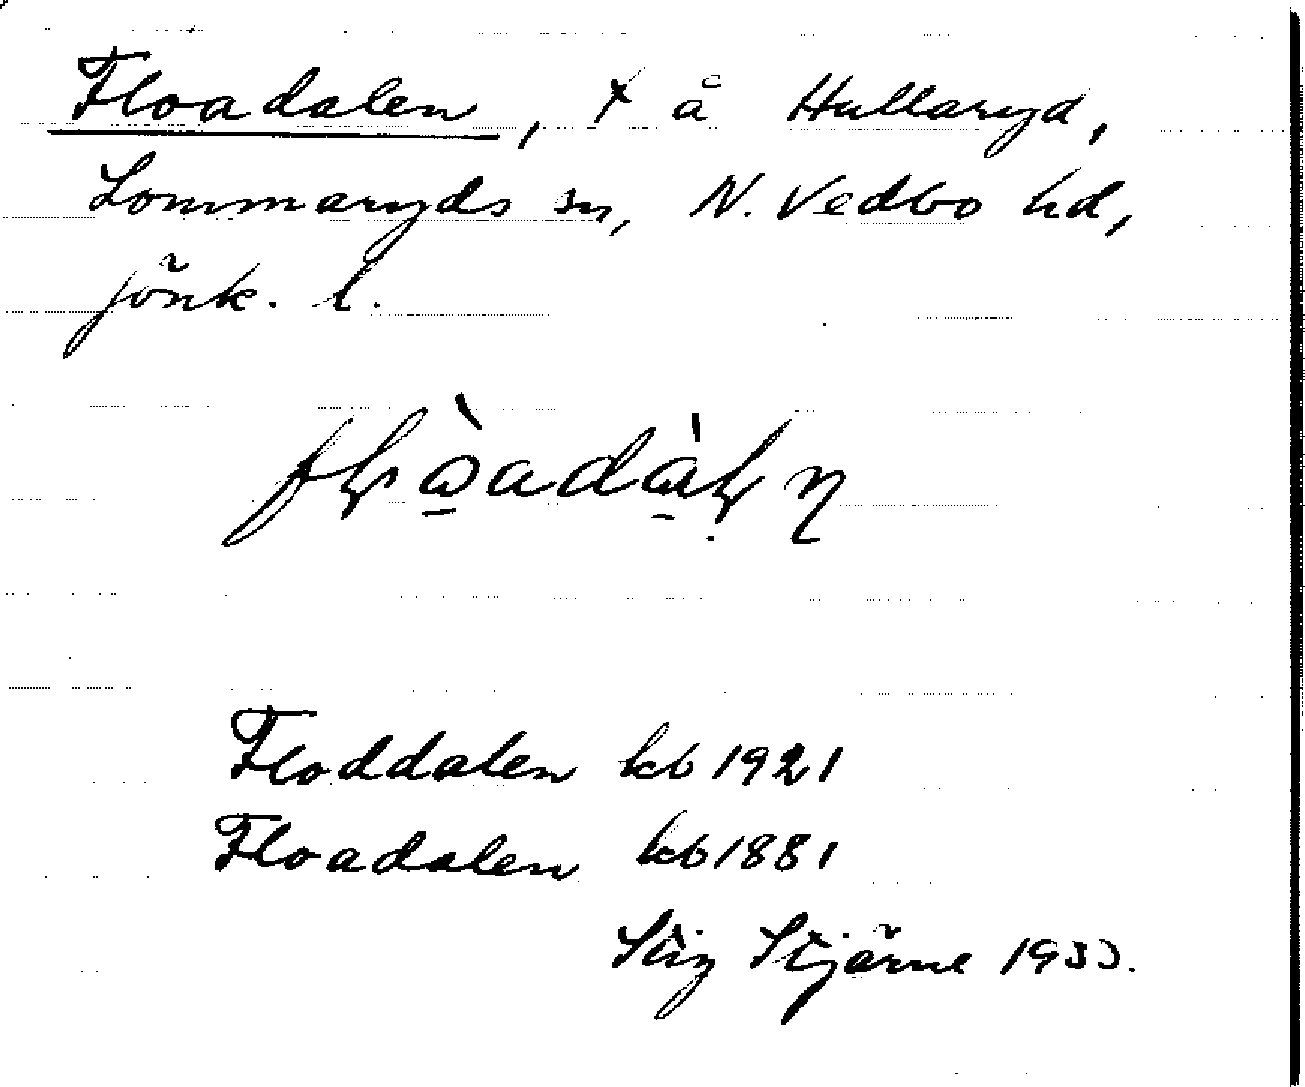 Floadalen, x å Hullaryd,
Lommaryds sn, N. Vedbo hd,
Jönk. l.
Floddalen kb 1921
Floadalen kb 1881
Stig Stjärne 1933.